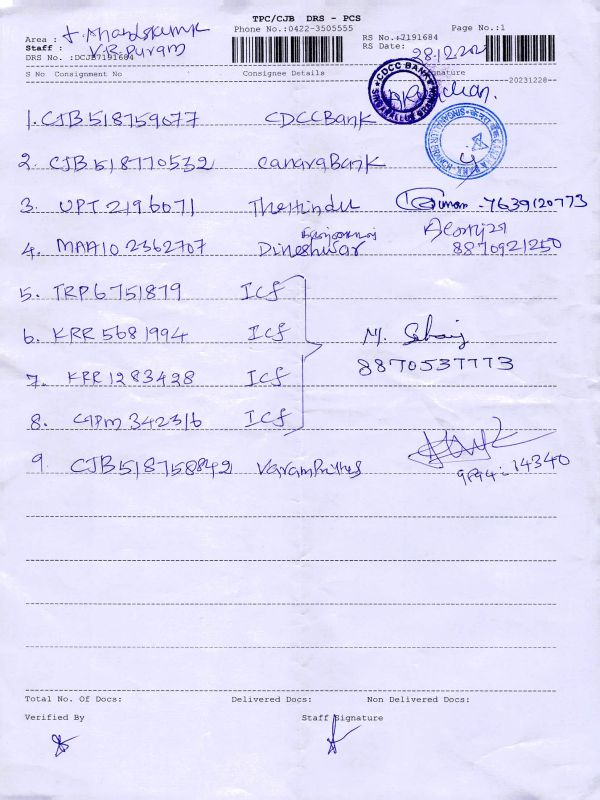 TPC/CJB DRS - PCS
Phone No.:0422-3505555 Page No.:1
Area :
Staff : V.R.Puram
DRS No. :DCJB7191684
RS No.:7191684
RS Date: 28.12.202
S No Consignment No Consignee Details Signature
20231228
CDCC BANK
1. CJB 518759077 CDCC Bank
2. CJB 518770532 Canara Bank
3. UPT 2196071 The Hindu 7639120773
4. MAA10 2362707 Dineshwar
8870921250
5. TRP 6751879 Icf
6. KRR 5681994 Icf
8870537773
7. KRR 1283428 Icf
8. 342316 Icf
9. CJB 518758842
14340
Total No. Of Docs: Delivered Docs: Non Delivered Docs:
Verified By Staff Signature